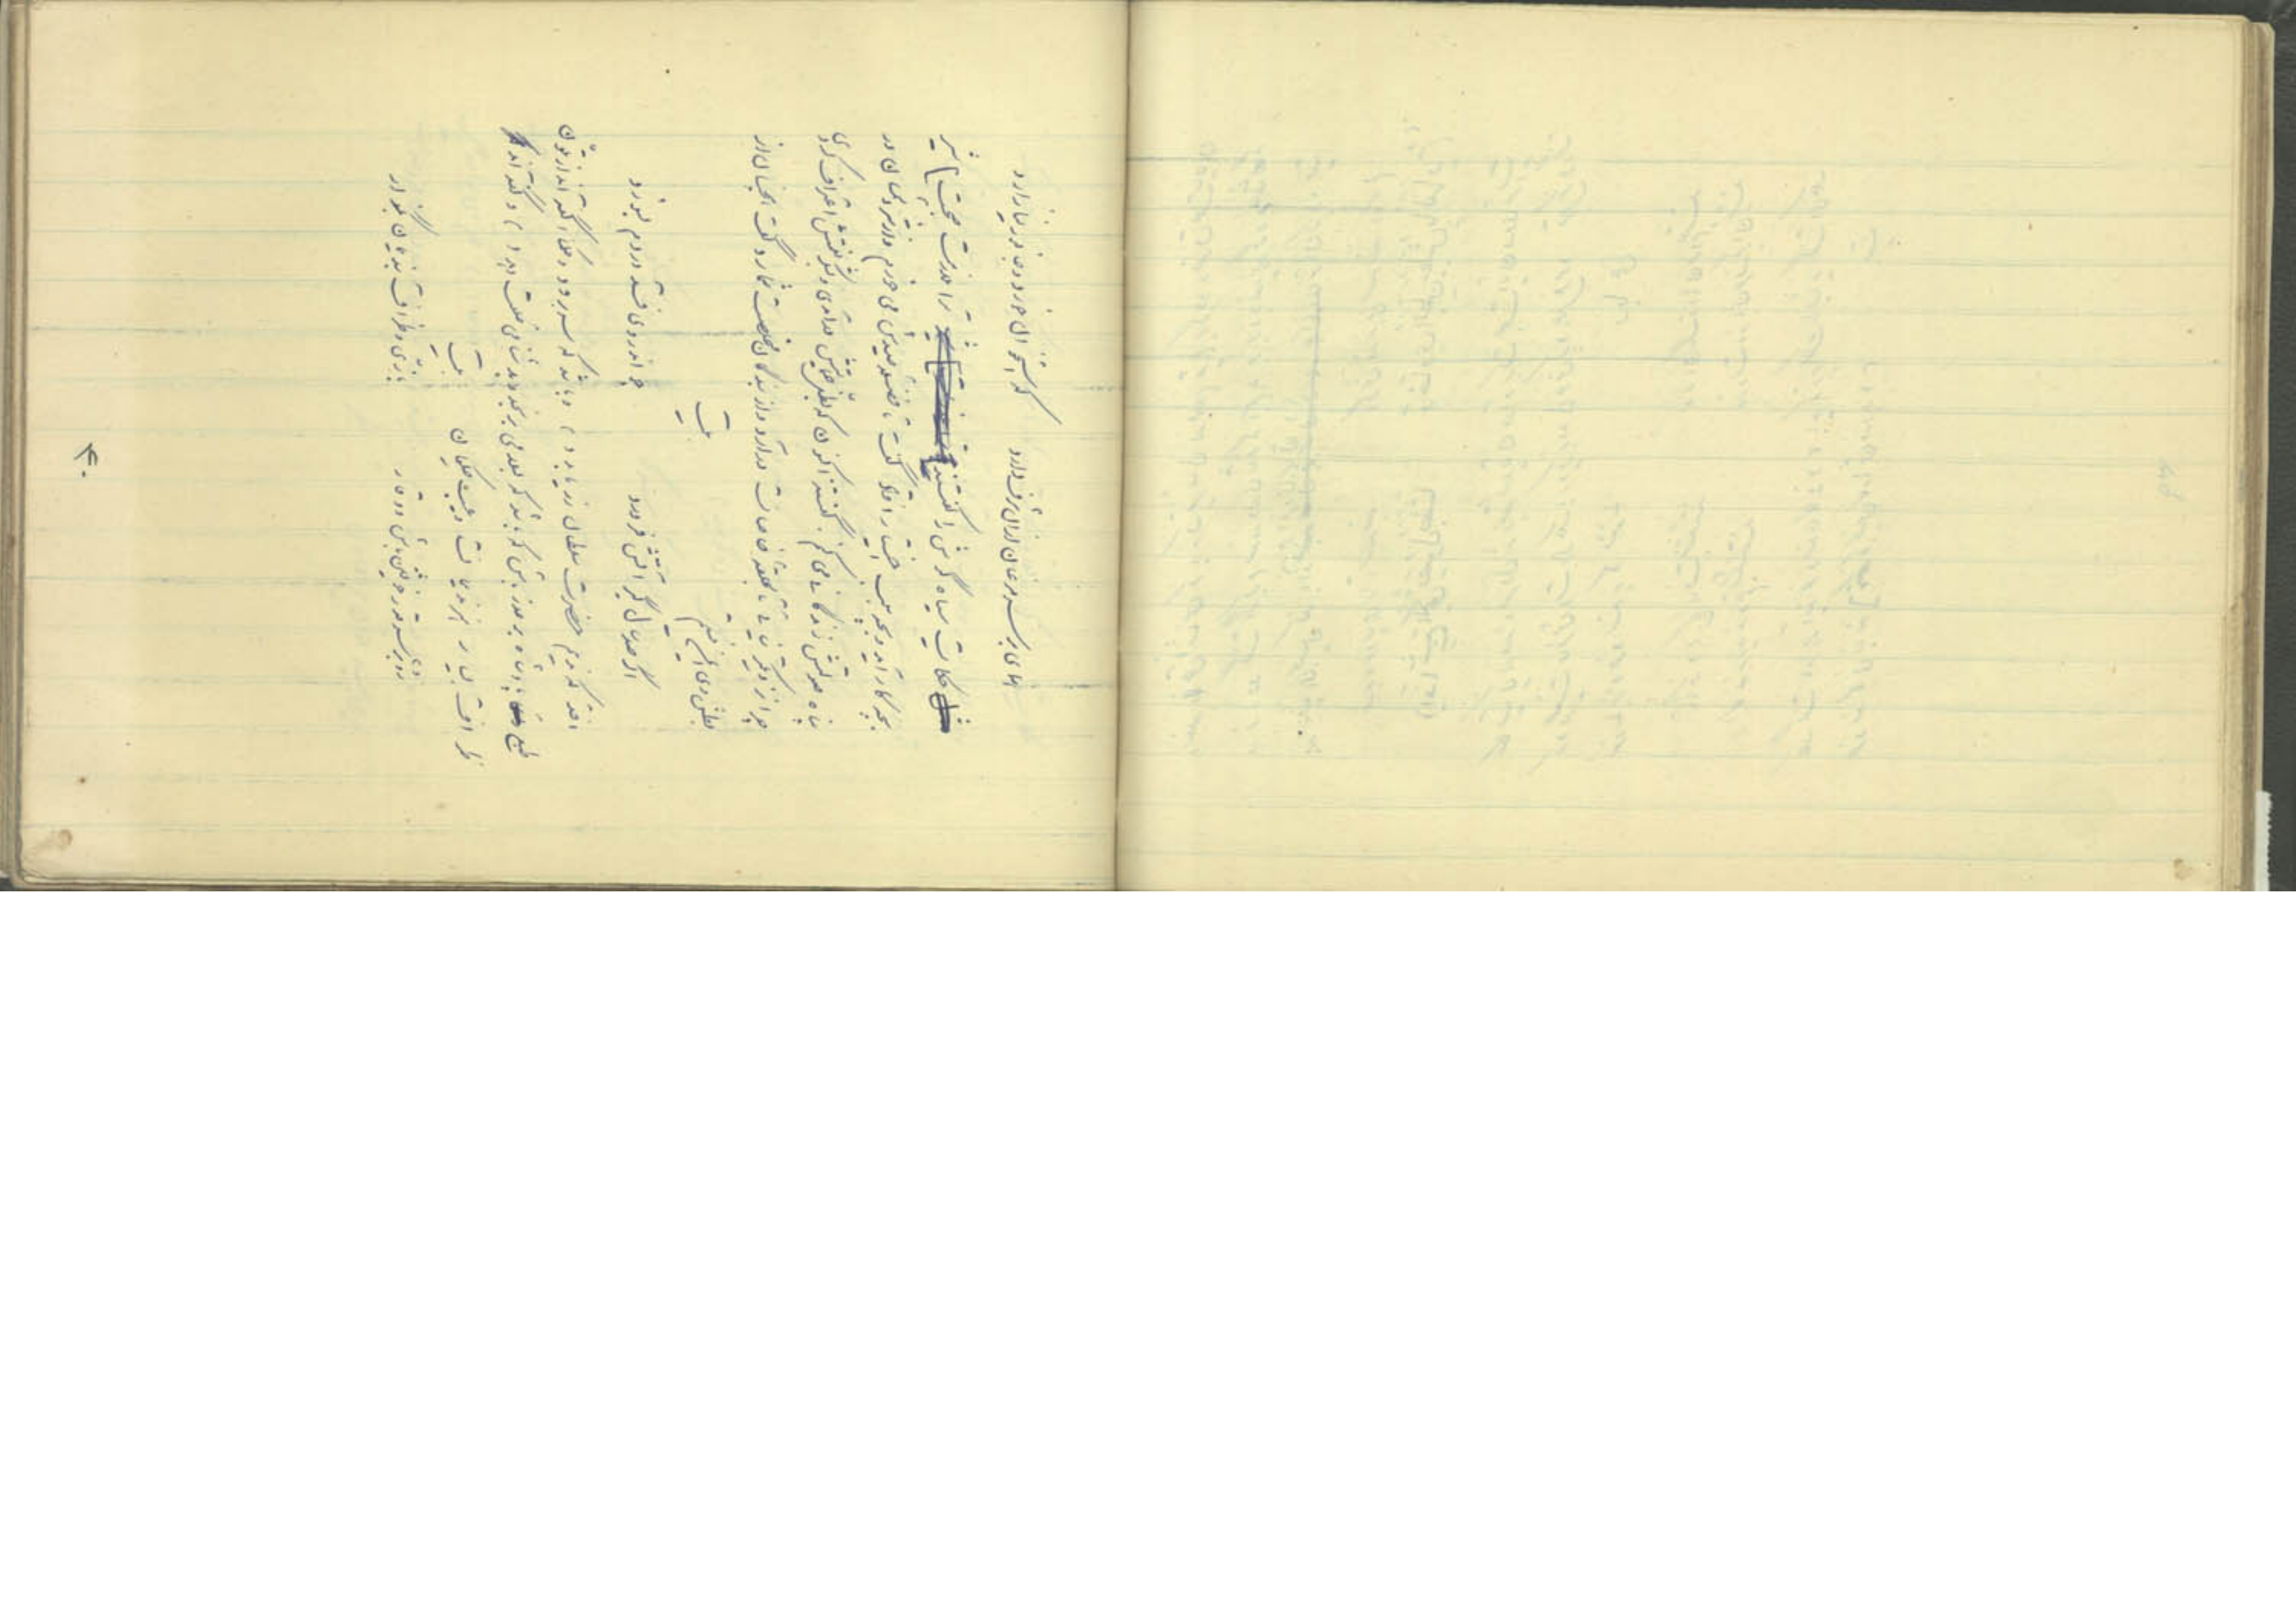 همای بر سر مرغان از آن شرف دارد که استخوان خورد و جانور نیازارد
حکایت سیاه گوش را گفتند ترا ملازمت صحبت شیر
بچه کار آید و بچه سبب اختیار افتاد گفت تا فضله صیدش می خورم و از شر دشمنان در
پناه صولتش زندگانی می کنم گفتند اکنون که بظل حمایتش درآمدی و بشکر نعمتش اعتراف کردی
چرا نزدیکتر نیائی تا بحلقه خاصانت درآرد و از بندگان مخلصت شمارد گفت همچنان از
بطش وی ایمن نیستم بیت
اگر صد سال گبر آتش فروزد چو اندر وی فتد در دم بسوزد
افتد که ندیم حضرت سلطان زر بیابد و باشد که سر برود و حکما گفته اند از تلون
طبع پادشاه بر حذر باش که باشد که بسلامی برنجد و بدشنامی خلعت دهد و گفته اند
ظرافت بسیار هنر ندیمانست و عیب حکیمان بیت
تو بر سر قدر خویشتن باش و وقار بازی و ظرافت بندیمان بگذار
۴۰